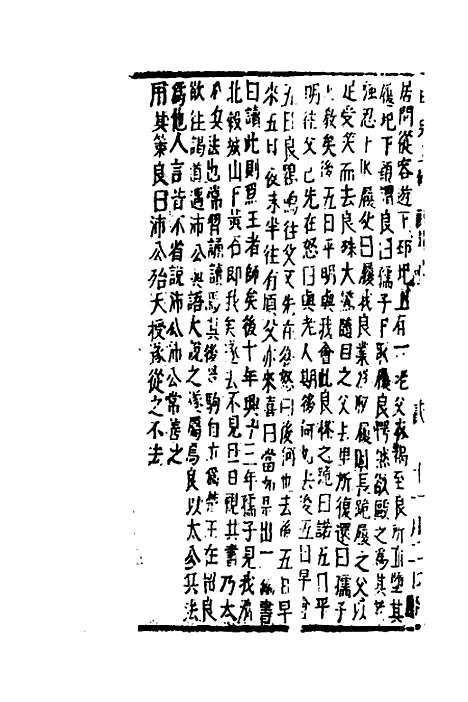 居間從容遊下邳圯上有一老父衣褐至良所直墮其
履圯下顧謂良曰孺子下取履良愕然欲毆之為其老
強忍下取履父曰履我良業為取履因長跪履之父以
足受笑而去良殊大驚隨目之父去里所復還曰孺子
可教矣後五日平明與我會此良怪之跪曰諾五日平
明往父已先在怒曰與老人期後何也去後五日早會
五日良雞鳴往父又先在復怒曰後何也去後五日早
來五日夜未半往有頃父亦來喜曰當如是出一編書
曰讀此則為王者師矣後十年興十三年孺子見我濟
北穀城山下黃石即我矣遂去不見旦日視其書乃太
公兵法也常習誦讀焉其後
楚王在留良
欲往謁道遇沛公與語大說之遂屬焉良以太公兵法
為他人言皆不省說沛公沛公常善之
用其策良曰沛公殆天授遂從之不去